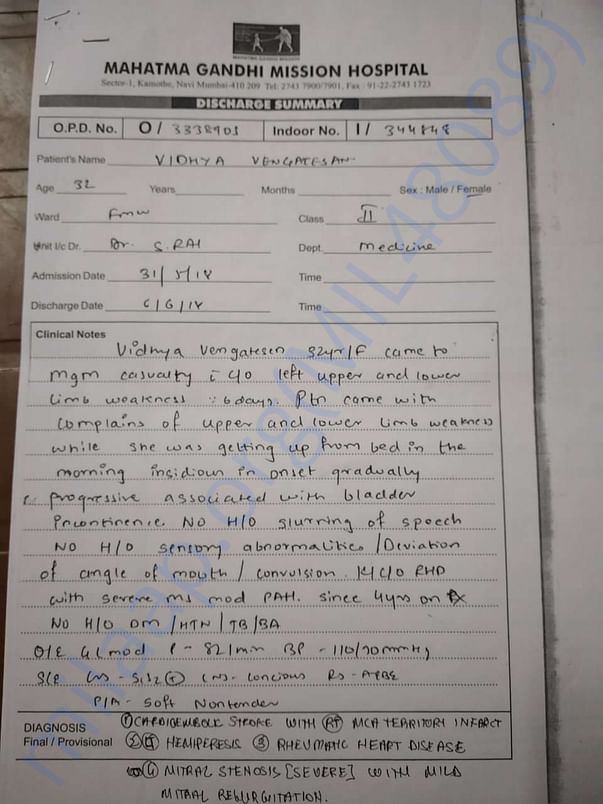 MAHATMA GANDHI MISSION HOSPITAL
Sector-1, Kamothe, Navi Mumbai-410 209 Tel: 2743 7900/7901, Fax : 91-22-2743 1723
DISCHARGE SUMMARY
O.P.D. No. O/ 3338901 Indoor No. I/ 344848
Patient's Name VIDHYA VENGATESAN
Age 32 Years Months Sex : Male / Female
Ward FMW Class II
Unit I/c Dr. Dr. S. RAI Dept. Medicine
Admission Date 31/5/18 Time
Discharge Date 6/6/18 Time
Clinical Notes
Vidhya Vengatesen 32yr/F came to
mgm casualty c C/o left upper and lower
limb weakness 6 days. Ptn came with
complains of upper and lower limb weakness
while she was getting up from bed in the
morning insidious in onset gradually
progressive associated with bladder
Incontinence. NO H/O slurring of speech
NO H/O sensory abnormalities / Deviation
of angle of mouth / convulsion. K/C/O RHD
with severe ms mod PAH. since 4yrs on
NO H/O DM / HTN / TB / BA
O/E GC mod P - 82/min BP - 110/70mmHg
S/E S1S2 + concious RS - AEBE
P/A - Soft Nontender
DIAGNOSIS ① CARDIOEMBOLIC STROKE WITH RT MCA TERRITORY INFARCT
Final / Provisional ② HEMIPERESIS ③ RHEUMATIC HEART DISEASE
④ MITRAL STENOSIS [SEVERE] WITH MILD
MITRAL REGURGITATION.
milaap.org(MIL48089)